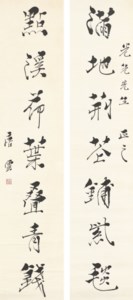 先生 正之
滿地荊花鋪紫毯
點溪荷葉疊青錢
唐雲